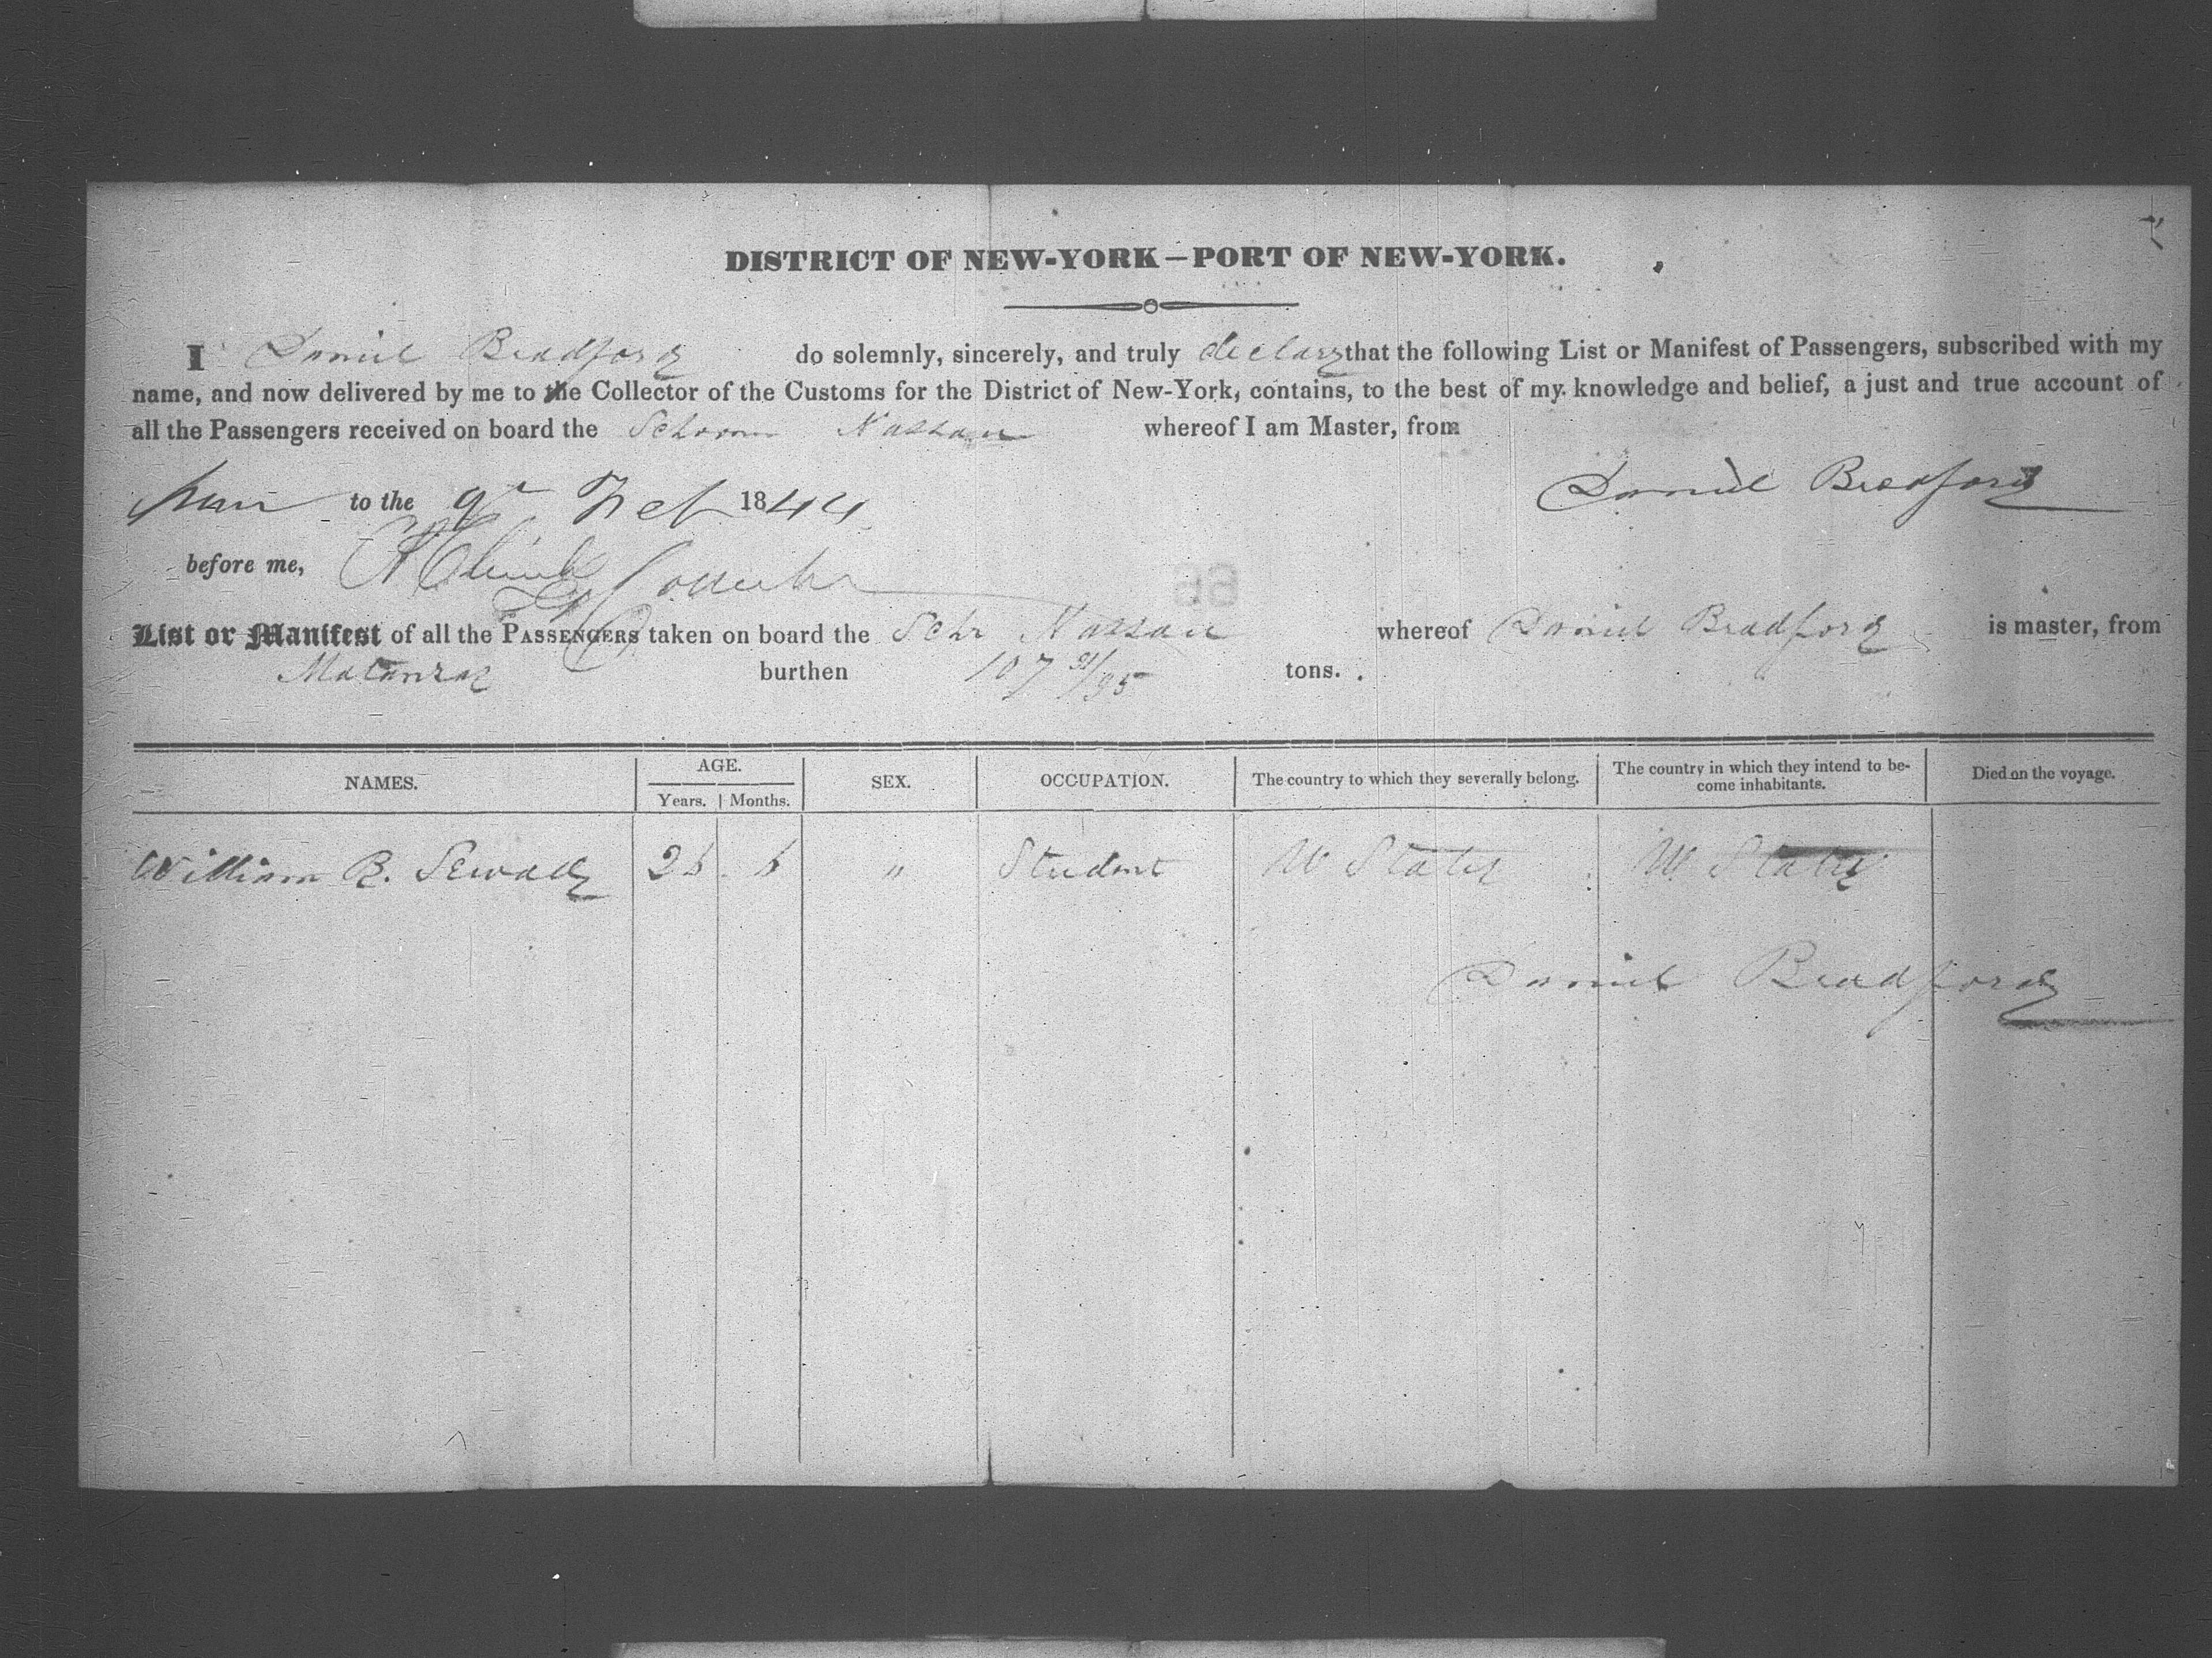 DISTRICT OF NEW-YORK—PORT OF NEW-YORK.
I Daniel Bradford do solemnly, sincerely, and truly declare that the following List or Manifest of Passengers, subscribed with my
name, and now delivered by me to the Collector of the Customs for the District of New-York, contains, to the best of my knowledge and belief, a just and true account of
all the Passengers received on board the Schooner Nassau whereof I am Master, from
to the 9th Feb 1844 Daniel Bradford
before me,
List or Manifest of all the PASSENGERS taken on board the Schr Nassau whereof Daniel Bradford is master, from
Matanzas burthen 107 91/95 tons.
NAMES. AGE. SEX. OCCUPATION. The country to which they severally belong. The country in which they intend to be- Died on the voyage.
Years. Months. come inhabitants.
William B. Sewall 26 6 " Student U States U States
Daniel Bradford